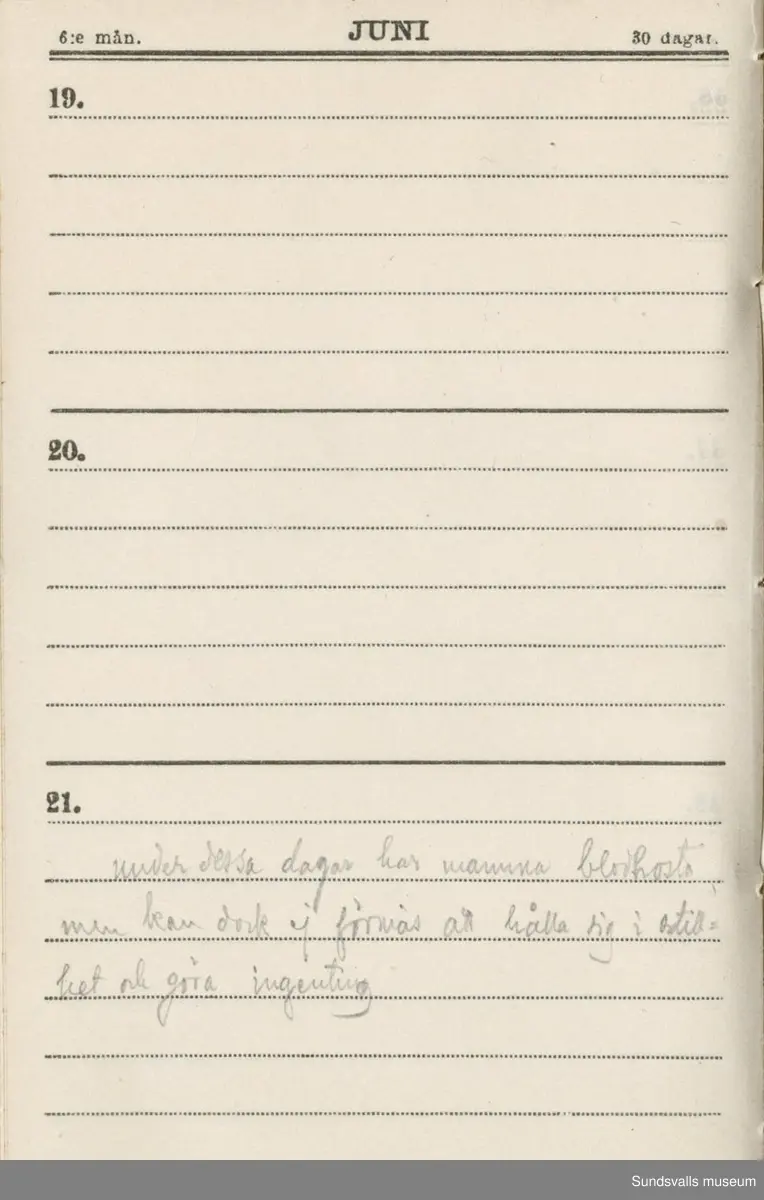 6:e mån. JUNI 30 dagar.
19.
20.
21.
under dessa dagar har mamma blodhosta,
men kan dock ej förmås att hålla sig i still=
het och göra ingenting
Sundsvalls museum